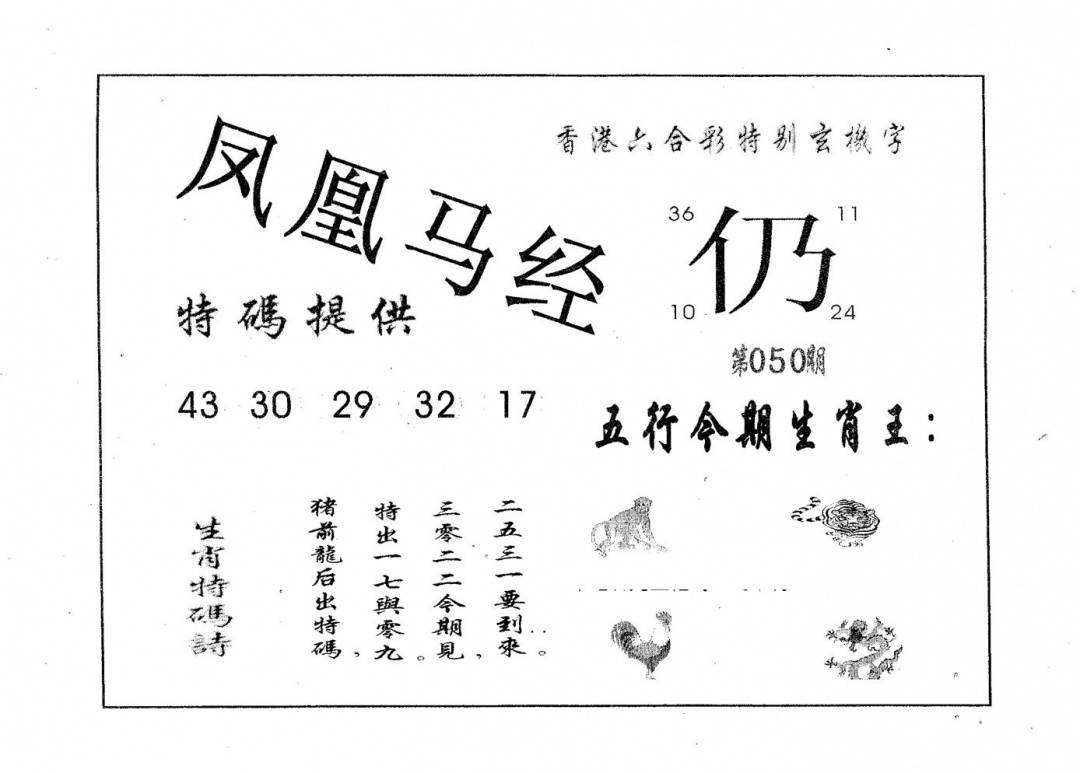 凤凰马经
香港六合彩特别玄機字
36 11
仍
10 24
特碼提供
第050期
43 30 29 32 17
五行今期生肖王：
生肖特碼詩
猪前龍后出特碼，
特出一七與零九。
三零二二今期見，
二五三一要到來。